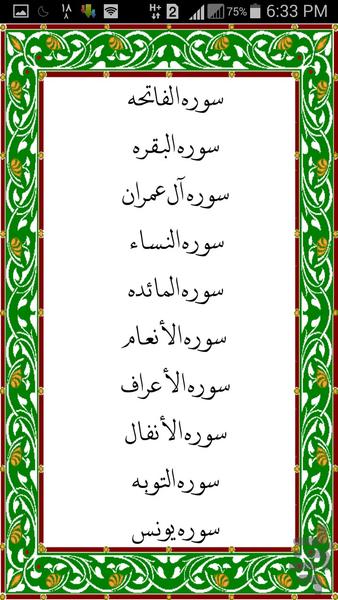 ١٨ H+ 2 75% 6:33 PM
سوره الفاتحه
سوره البقره
سوره آل عمران
سوره النساء
سوره المائده
سوره الأنعام
سوره الأعراف
سوره الأنفال
سوره التوبه
سوره يونس